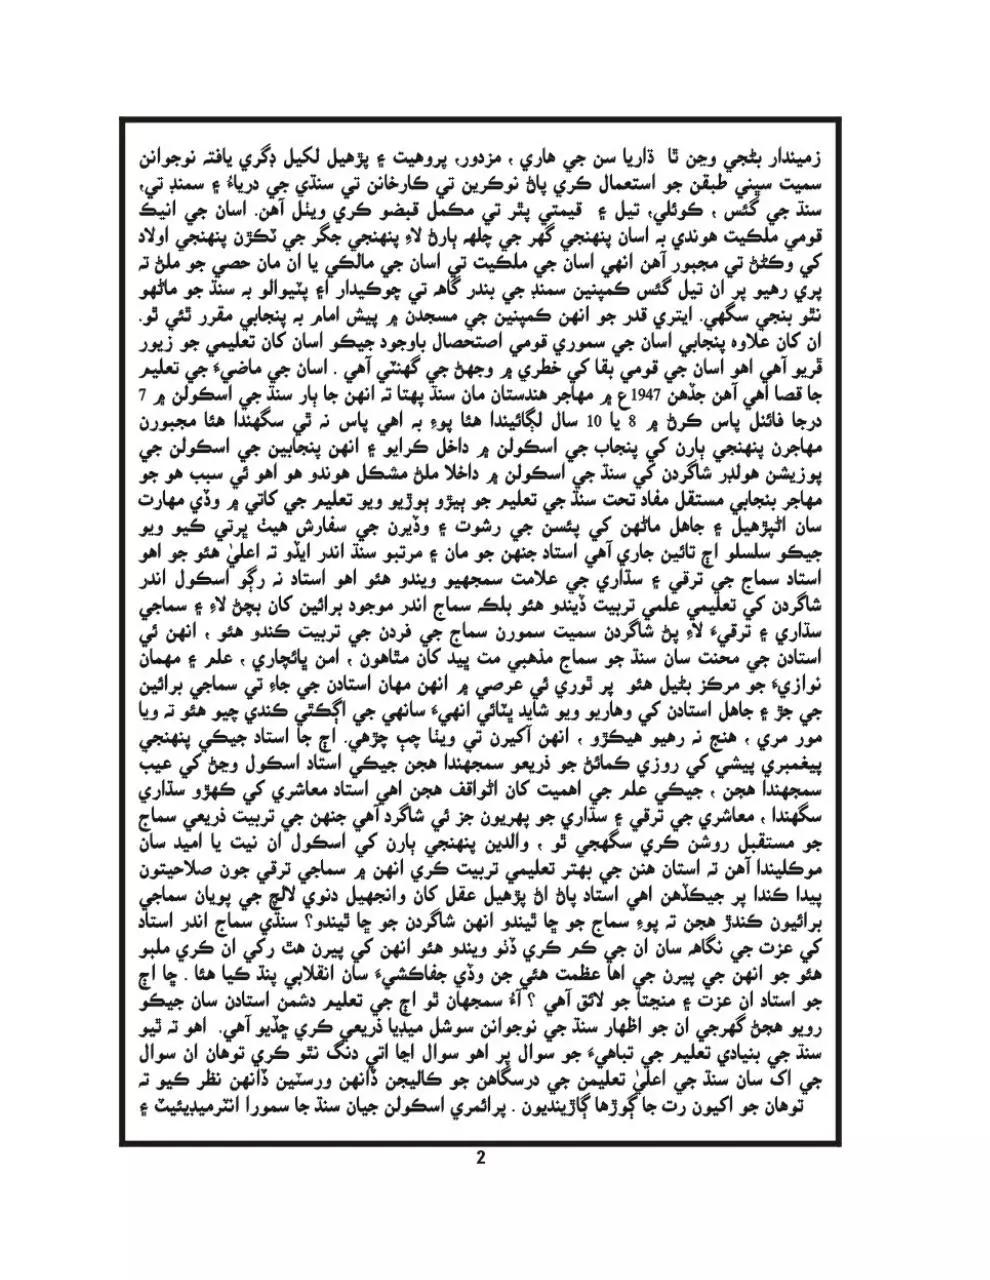 زميندار بڻجي وڃن ٿا ڌاريا سن جي هاري ، مزدور، پروهيت ۽ پڙهيل لکيل ڊگري يافتہ نوجوانن
سميت سڀني طبقن جو استعمال ڪري پاڻ نوڪرين تي ڪارخانن تي سنڌي جي درياءُ ۽ سمنڊ تي،
سنڌ جي گئس ، ڪوئلي، تيل ۽ قيمتي پٿر تي مڪمل قبضو ڪري ويٺل آهن. اسان جي انيڪ
قومي ملڪيت هوندي بہ اسان پنهنجي گهر جي چلهہ ٻارڻ لاءِ پنهنجي جگر جي ٽڪڙن پنهنجي اولاد
کي وڪڻڻ تي مجبور آهن انهي اسان جي ملڪيت تي اسان جي مالڪي يا ان مان حصي جو ملڻ تہ
پري رهيو پر ان تيل گئس ڪمپنين سمنڊ جي بندر گاهہ تي چوڪيدار اءِ پٽيوالو بہ سنڌ جو ماڻهو
نٿو بنجي سگهي. ايتري قدر جو انهن ڪمپنين جي مسجدن ۾ پيش امام بہ پنجابي مقرر ٿئي ٿو.
ان کان علاوه پنجابي اسان جي سموري قومي اصتحصال باوجود جيڪو اسان کان تعليمي جو زيور
ڦريو آهي اهو اسان جي قومي بقا کي خطري ۾ وجهڻ جي گهنٽي آهي . اسان جي ماضيءَ جي تعليم
جا قصا آهي آهن جڏهن 1947ع ۾ مهاجر هندستان مان سنڌ پهتا تہ انهن جا ٻار سنڌ جي اسڪولن ۾ 7
درجا فائنل پاس ڪرڻ ۾ 8 يا 10 سال لڳائيندا هئا پوءِ بہ اهي پاس نہ ٿي سگهندا هئا مجبورن
مهاجرن پنهنجي ٻارن کي پنجاب جي اسڪولن ۾ داخل ڪرايو ۽ انهن پنجابين جي اسڪولن جي
پوزيشن هولڊر شاگردن کي سنڌ جي اسڪولن ۾ داخلا ملڻ مشڪل هوندو هو اهو ئي سبب هو جو
مهاجر بنجابي مستقل مفاد تحت سنڌ جي تعليم جو ٻيڙو ٻوڙيو ويو تعليم جي کاتي ۾ وڏي مهارت
سان اڻپڙهيل ۽ جاهل ماڻهن کي پئسن جي رشوت ۽ وڏيرن جي سفارش هيٺ ڀرتي ڪيو ويو
جيڪو سلسلو اڄ تائين جاري آهي استاد جنهن جو مان ۽ مرتبو سنڌ اندر ايڏو تہ اعليٰ هئو جو اهو
استاد سماج جي ترقي ۽ سڌاري جي علامت سمجهيو ويندو هئو اهو استاد نہ رڳو اسڪول اندر
شاگردن کي تعليمي علمي تربيت ڏيندو هئو بلڪہ سماج اندر موجود برائين کان بچڻ لاءِ ۽ سماجي
سڌاري ۽ ترقيءَ لاءِ پڻ شاگردن سميت سمورن سماج جي فردن جي تربيت ڪندو هئو ، انهن ئي
استادن جي محنت سان سنڌ جو سماج مذهبي مت ڀيد کان مٿاهون ، امن ڀائچاري ، علم ۽ مهمان
نوازيءَ جو مرڪز بڻيل هئو پر ٿوري ئي عرصي ۾ انهن مهان استادن جي جاءِ تي سماجي برائين
جي جڙ ۽ جاهل استادن کي وهاريو ويو شايد ڀٽائي انهيءَ سانهي جي اڳڪٿي ڪندي چيو هئو تہ ويا
مور مري ، هنج نہ رهيو هيڪڙو ، انهن آکيرن تي ويٺا چٻ چڙهي. اڄ جا استاد جيڪي پنهنجي
پيغمبري پيشي کي روزي ڪمائڻ جو ذريعو سمجهندا هجن جيڪي استاد اسڪول وڃڻ کي عيب
سمجهندا هجن ، جيڪي علم جي اهميت کان اڻواقف هجن اهي استاد معاشري کي ڪهڙو سڌاري
سگهندا ، معاشري جي ترقي ۽ سڌاري جو پهريون جز ئي شاگرد آهي جنهن جي تربيت ذريعي سماج
جو مستقبل روشن ڪري سگهجي ٿو ، والدين پنهنجي ٻارن کي اسڪول ان نيت يا اميد سان
موڪليندا آهن تہ استان هنن جي بهتر تعليمي تربيت ڪري انهن ۾ سماجي ترقي جون صلاحيتون
پيدا ڪندا پر جيڪڏهن اهي استاد پاڻ اڻ پڙهيل عقل کان وانجهيل دنوي لالچ جي پويان سماجي
برائيون ڪندڙ هجن تہ پوءِ سماج جو ڇا ٿيندو انهن شاگردن جو ڇا ٿيندو؟ سنڌي سماج اندر استاد
کي عزت جي نگاهہ سان ان جي ڪم ڪري ڏٺو ويندو هئو انهن کي پيرن هٿ رکي ان ڪري ملبو
هئو جو انهن جي پيرن جي اها عظمت هئي جن وڏي جفاڪشيءَ سان انقلابي پنڌ ڪيا هئا . ڇا اڄ
جو استاد ان عزت ۽ منڃتا جو لائق آهي ؟ آءُ سمجهان ٿو اڄ جي تعليم دشمن استادن سان جيڪو
رويو هجڻ گهرجي ان جو اظهار سنڌ جي نوجوانن سوشل ميڊيا ذريعي ڪري ڇڏيو آهي. اهو تہ ٿيو
سنڌ جي بنيادي تعليم جي تباهيءَ جو سوال پر اهو سوال اڃا اتي دنگ نٿو ڪري توهان ان سوال
جي اک سان سنڌ جي اعليٰ تعليمن جي درسگاهن جو ڪاليجن ڏانهن ورسٽين ڏانهن نظر ڪيو تہ
توهان جو اکيون رت جا ڳوڙها ڳاڙينديون . پرائمري اسڪولن جيان سنڌ جا سمورا انٽرميڊيئيٽ ۽
2